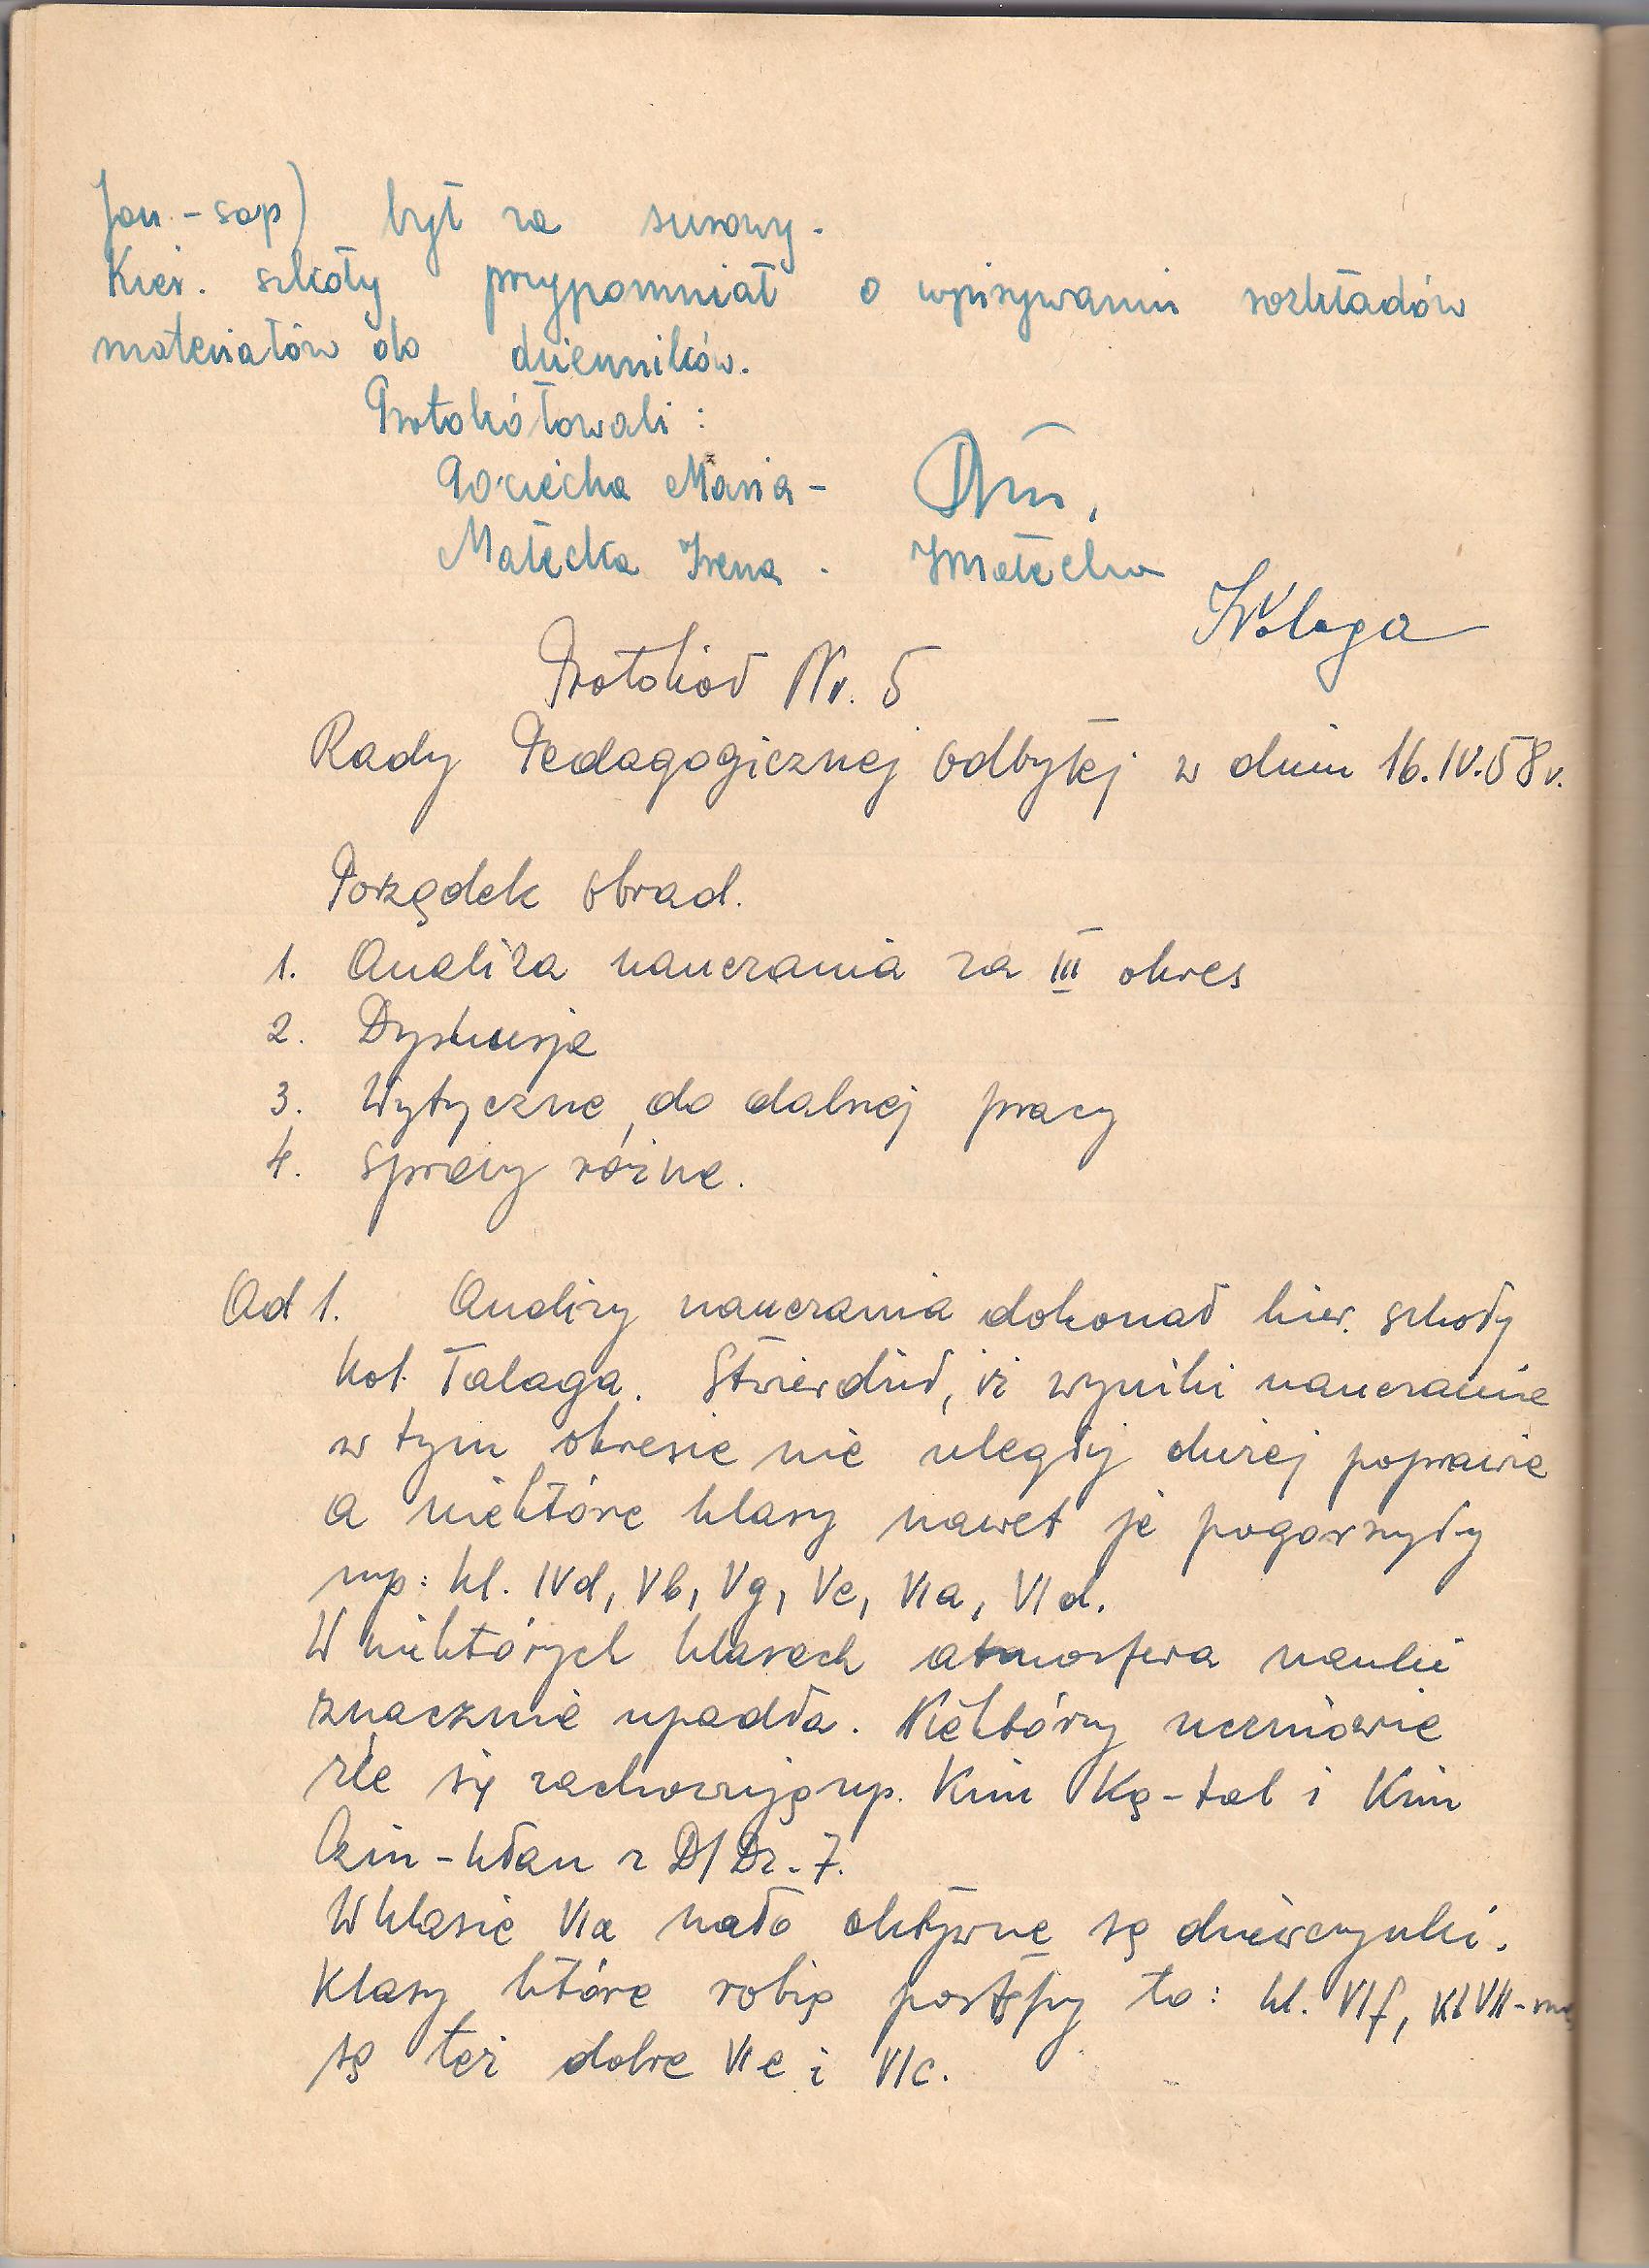 Jon-sop) był za surowy.
Kier. szkoły przypomniał o wpisywaniu rozkładów
materiałów do dzienników.
Protokółowali:
Pociecha Maria -
Małecka Irena - IMałecka
Protokół Nr. 5
Rady Pedagogicznej odbytej w dniu 16.IV.58 r.
Porządek obrad.
1. Analiza nauczania za III okres
2. Dyskusja
3. Wytyczne do dalszej pracy
4. Sprawy różne.
Ad 1. Analizy nauczania dokonał kier. szkoły
kol. Talaga. Stwierdził, iż wyniki nauczania
w tym okresie nie uległy dużej poprawie
a niektóre klasy nawet je pogorszyły
np: kl. IVd, Vb, Vg, Ve, VIa, VId.
W niektórych klasach atmosfera nauki
znacznie upadła. Niektórzy uczniowie
źle się zachowują np. Kim Ką-tel i Kim
Czin-kłan z D/Dz.-7.
W klasie VIa mało aktywne są dziewczynki.
Klasy które robią postępy to: kl. VIf, kl VII-me
są też dobre VIe i VIc.